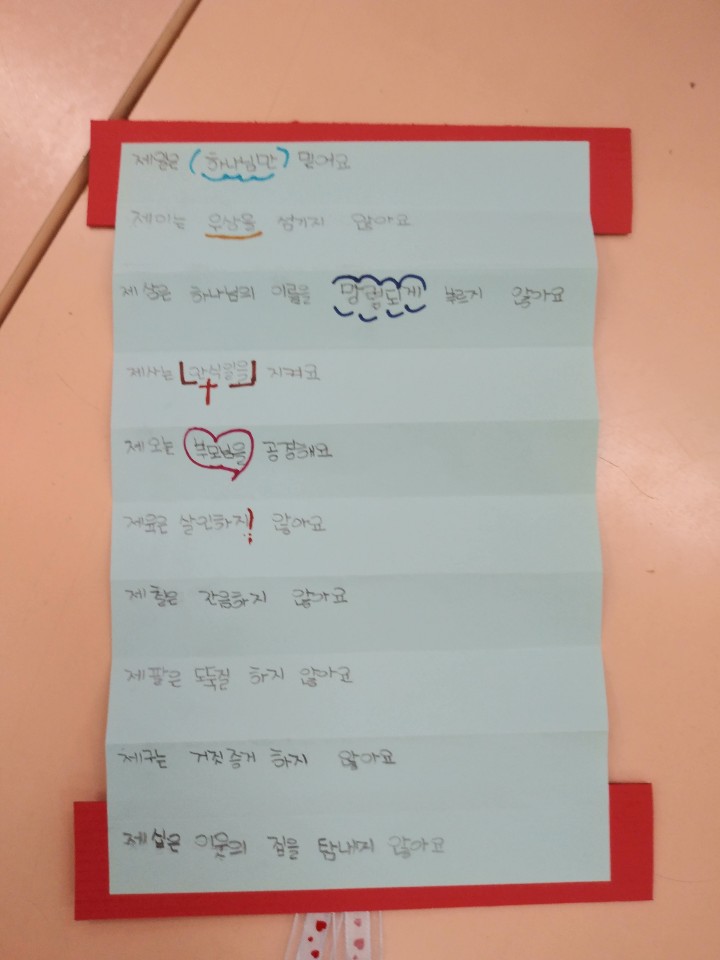 제일은 (하나님만) 믿어요
제이는 우상을 섬기지 않아요
제삼은 하나님의 이름을 망령되게 부르지 않아요
제사는 [안식일을] 지켜요
제오는 부모님을 공경해요
제육은 살인하지! 않아요
제칠은 간음하지 않아요
제팔은 도둑질 하지 않아요
제구는 거짓증거 하지 않아요
제십은 이웃의 집을 탐내지 않아요